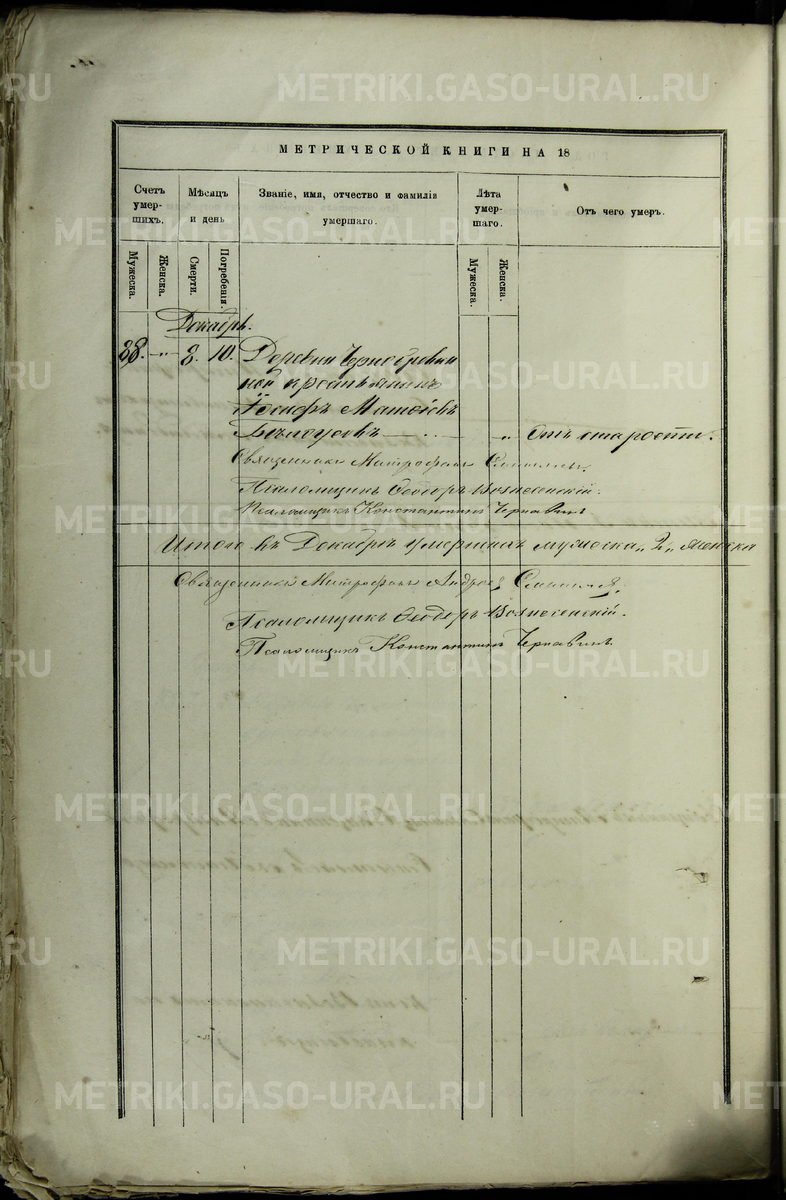 МЕТРИЧЕСКОЙ КНИГИ НА 18
Счетъ умер-шихъ.
Мѣсяцъ и день
Званіе, имя, отчество и фамилія умершаго.
Лѣта умер-шаго.
Отъ чего умеръ.
Мужеска.
Женска.
Смерти.
Погребенія.
Мужеска.
Женска.
Декабрь.
38. " 8. 10. Деревни
крестьянинъ
Іосифъ Матѳіевъ
Бѣлоусовъ " Отъ старости.
Священникъ Митрофанъ
Псаломщикъ Ѳеодоръ Вознесенскій.
Псаломщикъ Константинъ Чернавинъ
Итого въ Декабрѣ умершихъ мужеска „2„ женска
Священникъ Митрофанъ
Псаломщикъ Ѳеодоръ Вознесенскій.
Псаломщикъ Константинъ Чернавинъ.
METRIKI.GASO-URAL.RU